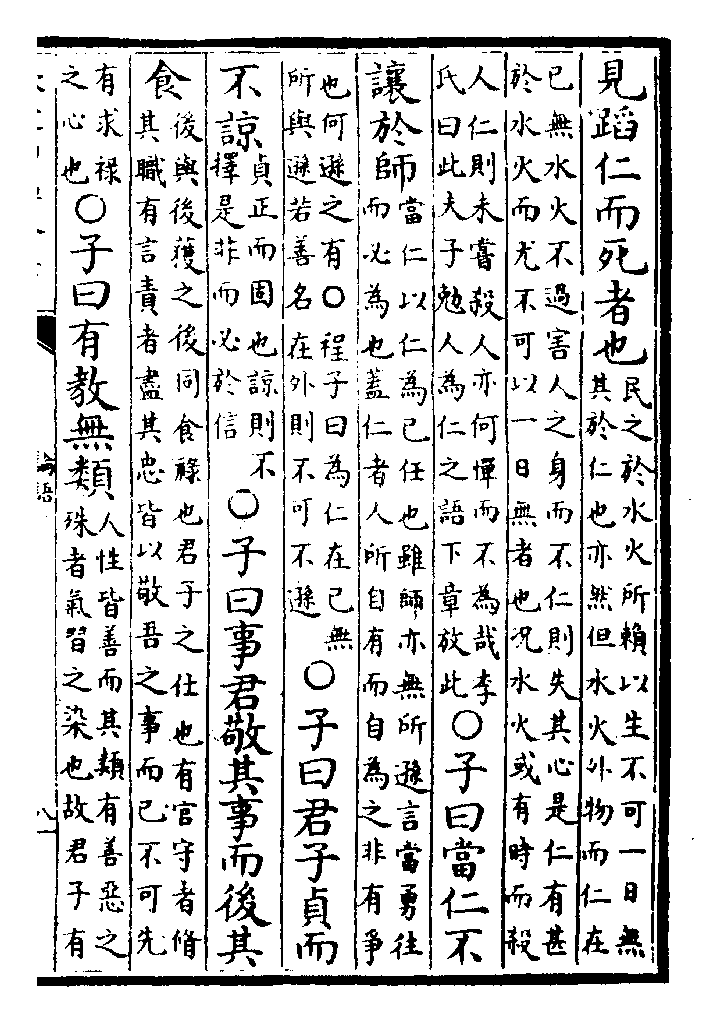 見蹈仁而死者也民之於水火所賴以生不可一日無其於仁也亦然但水火外物而仁在
已無水火不過害人之身而不仁則失其心是仁有甚於水火而尤不可以一日無者也況水火或有時而殺
人仁則未嘗殺人亦何憚而不為哉李氏曰此夫子勉人為仁之語下章放此○子曰當仁不
讓於師當仁以仁為已任也雖師亦無所遜言當勇往而必為也蓋仁者人所自有而自為之非有爭
也何遜之有○程子曰為仁在已無所與遜若善名在外則不可不遜○子曰君子貞而
不諒貞正而固也諒則不擇是非而必於信○子曰事君敬其事而後其
食後與後獲之後同食祿也君子之仕也有官守者脩其職有言責者盡其忠皆以敬吾之事而已不可先
有求祿之心也○子曰有教無類人性皆善而其類有善惡之殊者氣習之染也故君子有
論語